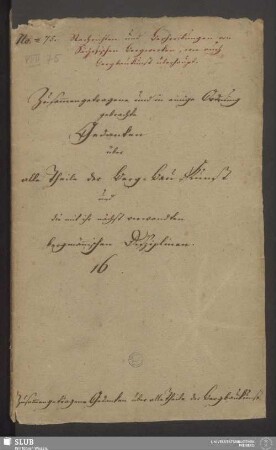 No = 75. Nachrichten und Bemerkungen von
Sächsischen Bergwerken, wie auch
Bergbaukunst überhaupt.
XVII 75
Zusammengetragene und in einige Ordnung
gebrachte
Gedanken
über
alle Theile der Berg-Bau Kunst
und
die mit ihr nächst verwandten
bergmänischen Disziplinen.
16.
Zusammengetragene Gedanken über alle Theile der Bergbaukunst
SLUB
Wir führen Wissen.
UNIVERSITÄTSBIBLIOTHEK
FREIBERG